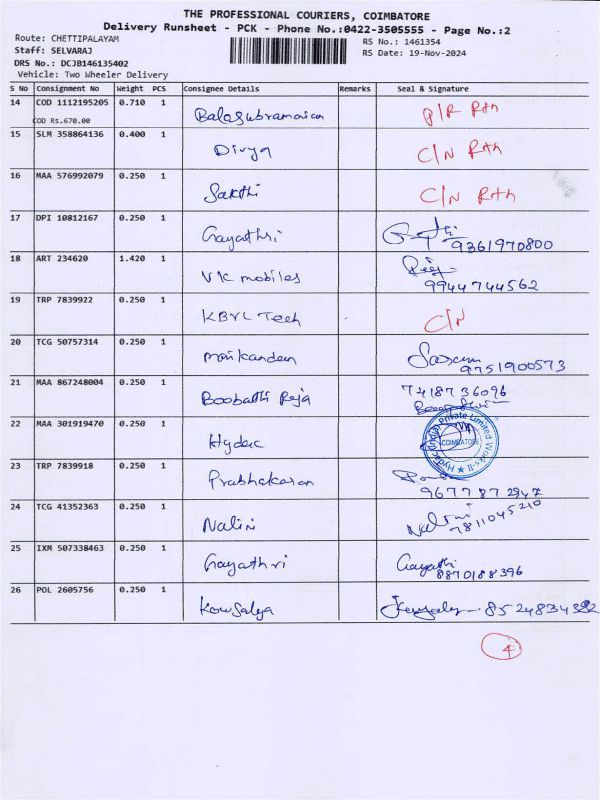 THE PROFESSIONAL COURIERS, COIMBATORE
Delivery Runsheet - PCK - Phone No.:0422-3505555 - Page No.:2
Route: CHETTIPALAYAM
RS No.: 1461354
Staff: SELVARAJ
RS Date: 19-Nov-2024
DRS No.: DCJB146135402
Vehicle: Two Wheeler Delivery
S No Consignment No Weight PCS Consignee Details Remarks Seal & Signature
14 COD 1112195205 0.710 1 Balasubramanian P/R Rth
COD Rs.670.00
15 SLM 358864136 0.400 1 Divya C/N Rth
16 MAA 576992079 0.250 1 Sakthi C/N Rth
17 DPI 10812167 0.250 1 Gayathri 9361970800
18 ART 234620 1.420 1 VK mobiles 9944744562
19 TRP 7839922 0.250 1 KBVL Tech C/N
20 TCG 50757314 0.250 1 Manikandan 9751900573
21 MAA 867248004 0.250 1 Boobathi Raja 7418736096
22 MAA 301919470 0.250 1 Hydac
Hydac (India) Private Limited Works-II
COIMBATORE
23 TRP 7839918 0.250 1 Prabhakaran 9677872947
24 TCG 41352363 0.250 1 Nalini Nalini 7811045210
25 IXM 507338463 0.250 1 Gayathri Gayathri 8870188396
26 POL 2605756 0.250 1 Kowsalya 8524834382
4